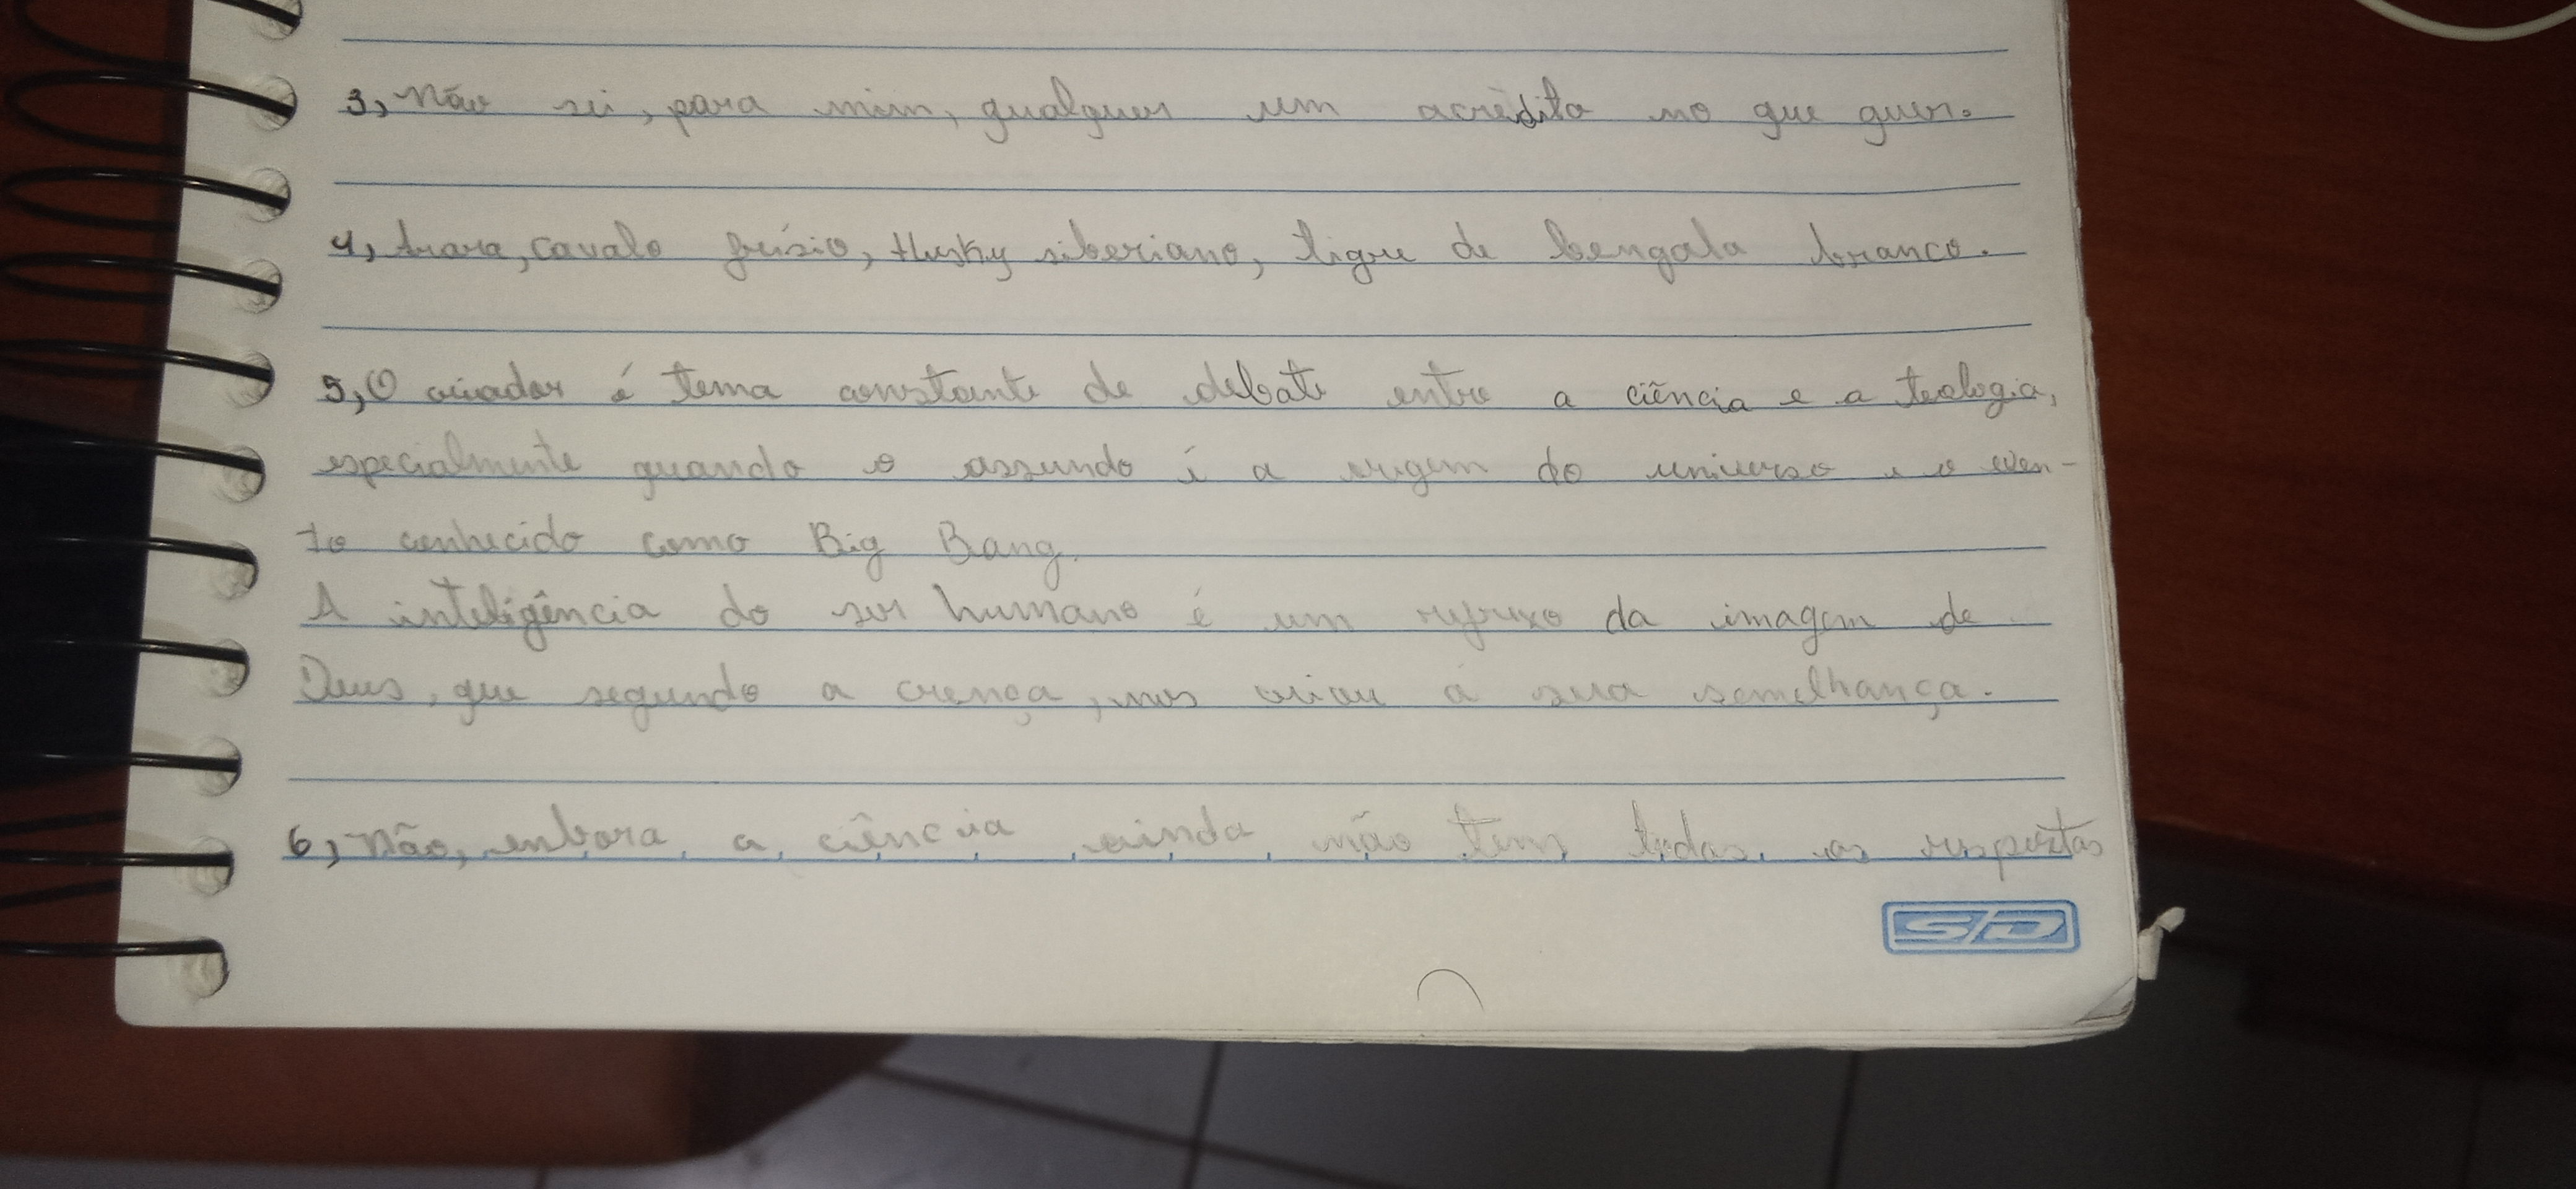 3, Não sei, para mim, qualquer um acredita no que quer.
4, Arara, cavalo frísio, Husky siberiano, tigre de bengala branco.
5, O criador é tema constante de debate entre a ciência e a teologia,
especialmente quando o assundo é a origem do universo e o even-
to conhecido como Big Bang.
A inteligência do ser humano é um reflexo da imagem de
Deus, que segundo a crença, nos criou a sua semelhança.
6, Não, enbora a ciência ainda não tem todas as respostas
S/D